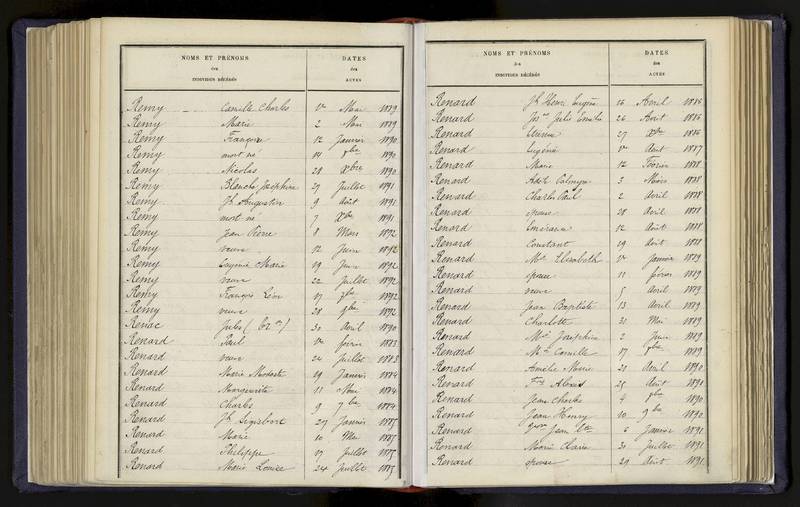 NOMS ET PRÉNOMS
des
INDIVIDUS DÉCÉDÉS
DATES
des
ACTES
Remy Camille Charles 1er Mai 1889
Remy Marie 2 Mai 1889
Remy François 12 Janvier 1890
Remy mort né 14 1890
Remy Nicolas 28 Xbre 1890
Remy Blanche Joséphine 29 Juillet 1891
Remy Jh Augustin 9 Août 1891
Remy mort né 7 Xbre 1891
Remy Jean Pierre 8 Mars 1892
Remy veuve 12 Juin 1892
Remy Eugénie Marie 19 Juin 1892
Remy veuve 22 Juillet 1892
Remy François Léon 17 1892
Remy veuve 28 1892
Renac Jules 30 Avril 1890
Renard Paul 1er février 1883
Renard veuve 24 Juillet 1883
Renard Marie Modeste 29 Janvier 1884
Renard Marguerite 11 Mai 1884
Renard Charles 9 1884
Renard Jh 27 Janvier 1885
Renard Marie 10 Mai 1885
Renard Philippe 17 Juillet 1885
Renard Marie Louise 24 Juillet 1885
NOMS ET PRÉNOMS
des
INDIVIDUS DÉCÉDÉS
DATES
des
ACTES
Renard Jh Henri Eugène 16 Avril 1886
Renard Julie 26 Août 1886
Renard 27 Xbre 1886
Renard Eugénie 1er Août 1887
Renard Marie 12 Février 1888
Renard 3 Mars 1888
Renard Charles Paul 2 Avril 1888
Renard épouse 28 Avril 1888
Renard 12 Août 1888
Renard Constant 29 Août 1888
Renard Mie Elisabeth 1er Janvier 1889
Renard épouse 11 février 1889
Renard veuve 5 Avril 1889
Renard Jean Baptiste 13 Avril 1889
Renard Charlotte 30 Mai 1889
Renard Mie Joséphine 2 Juin 1889
Renard Mie Camille 17 1889
Renard Amélie Marie 20 Avril 1890
Renard Alexis 25 Août 1890
Renard Jean Charles 4 1890
Renard Jean Henry 10 9bre 1890
Renard Jean Bte 6 Janvier 1891
Renard Marie Claire 30 Juillet 1891
Renard épouse 29 Août 1891